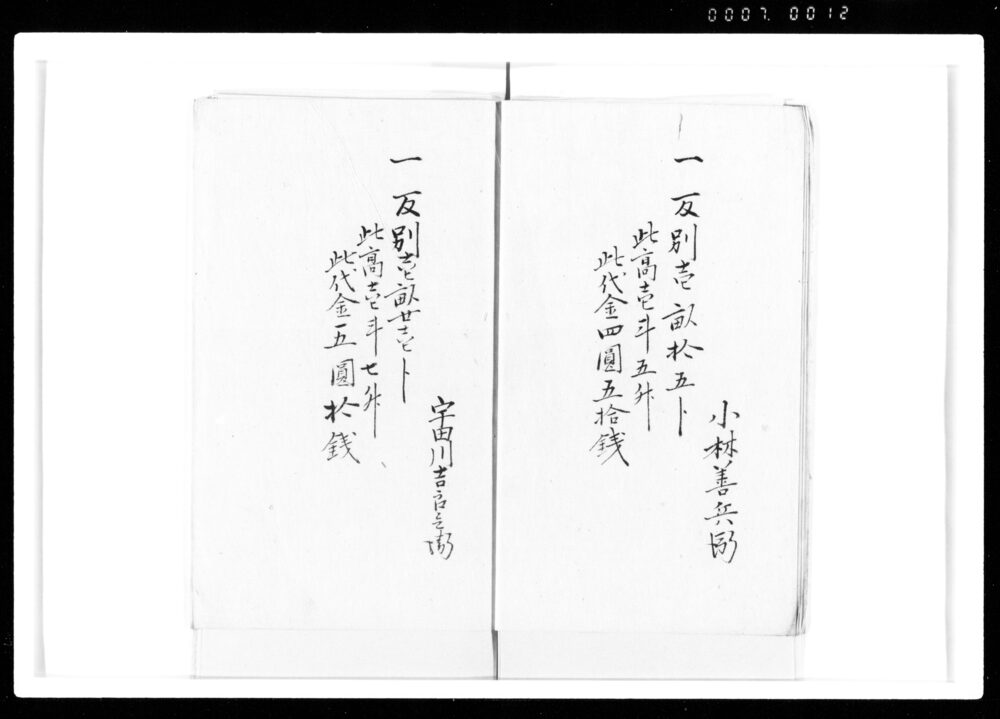 0007. 0012
小林善兵衛
一反別壱畝拾五ト
此高壱斗五升
此代金四圓五拾銭
宇田川吉右衛門
一反別壱畝廿壱ト
此高壱斗七升
此代金五圓拾銭